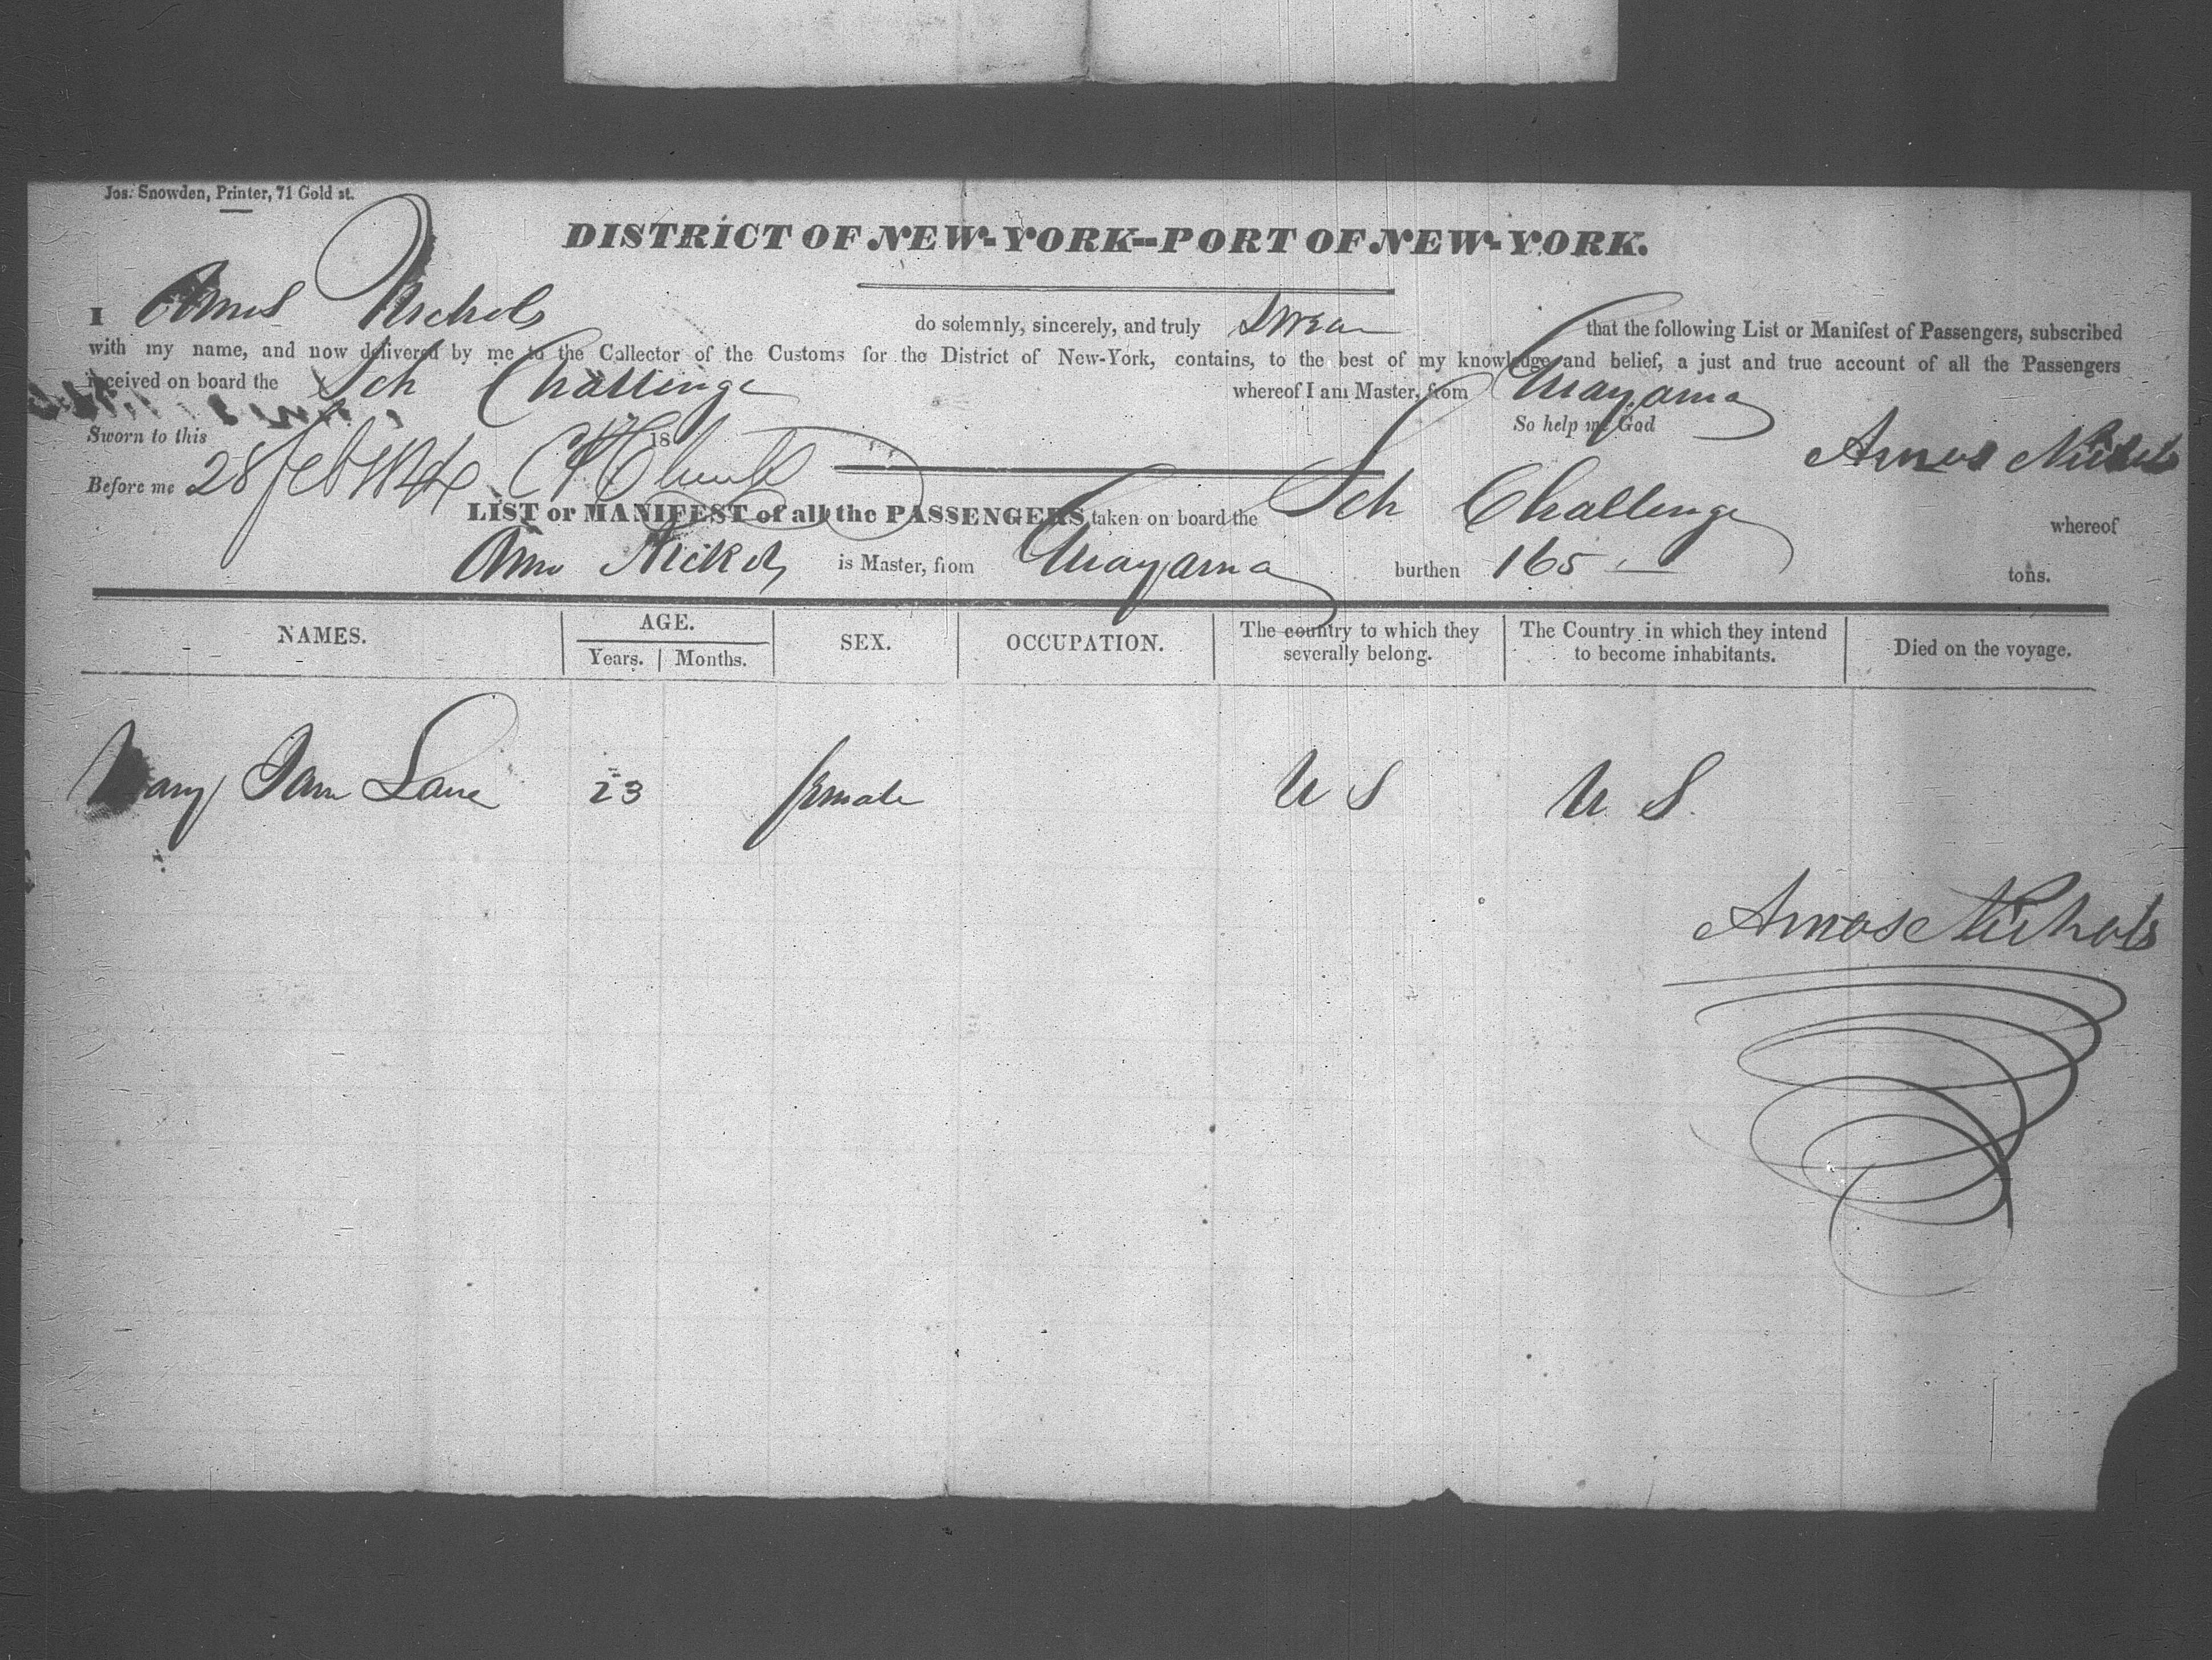 Jos: Snowden, Printer, 71 Gold st.
DISTRICT OF NEW-YORK--PORT OF NEW-YORK.
I Amos Nichols do solemnly, sincerely, and truly Swear that the following List or Manifest of Passengers, subscribed
with my name, and now delivered by me to the Collector of the Customs for the District of New-York, contains, to the best of my knowledge and belief, a just and true account of all the Passengers
received on board the Sch Challenge whereof I am Master, from Guayama
Sworn to this 18 So help me God
Before me 28 Feb 1844 Amos Nichols
LIST or MANIFEST of all the PASSENGERS taken on board the Sch Challenge whereof
Amos Nichols is Master, from Guayama burthen 165 tons.
NAMES. AGE. SEX. OCCUPATION. The country to which they severally belong. The Country in which they intend to become inhabitants. Died on the voyage.
Years. Months.
Mary Jane Lane 23 female U S U S.
Amos Nichols